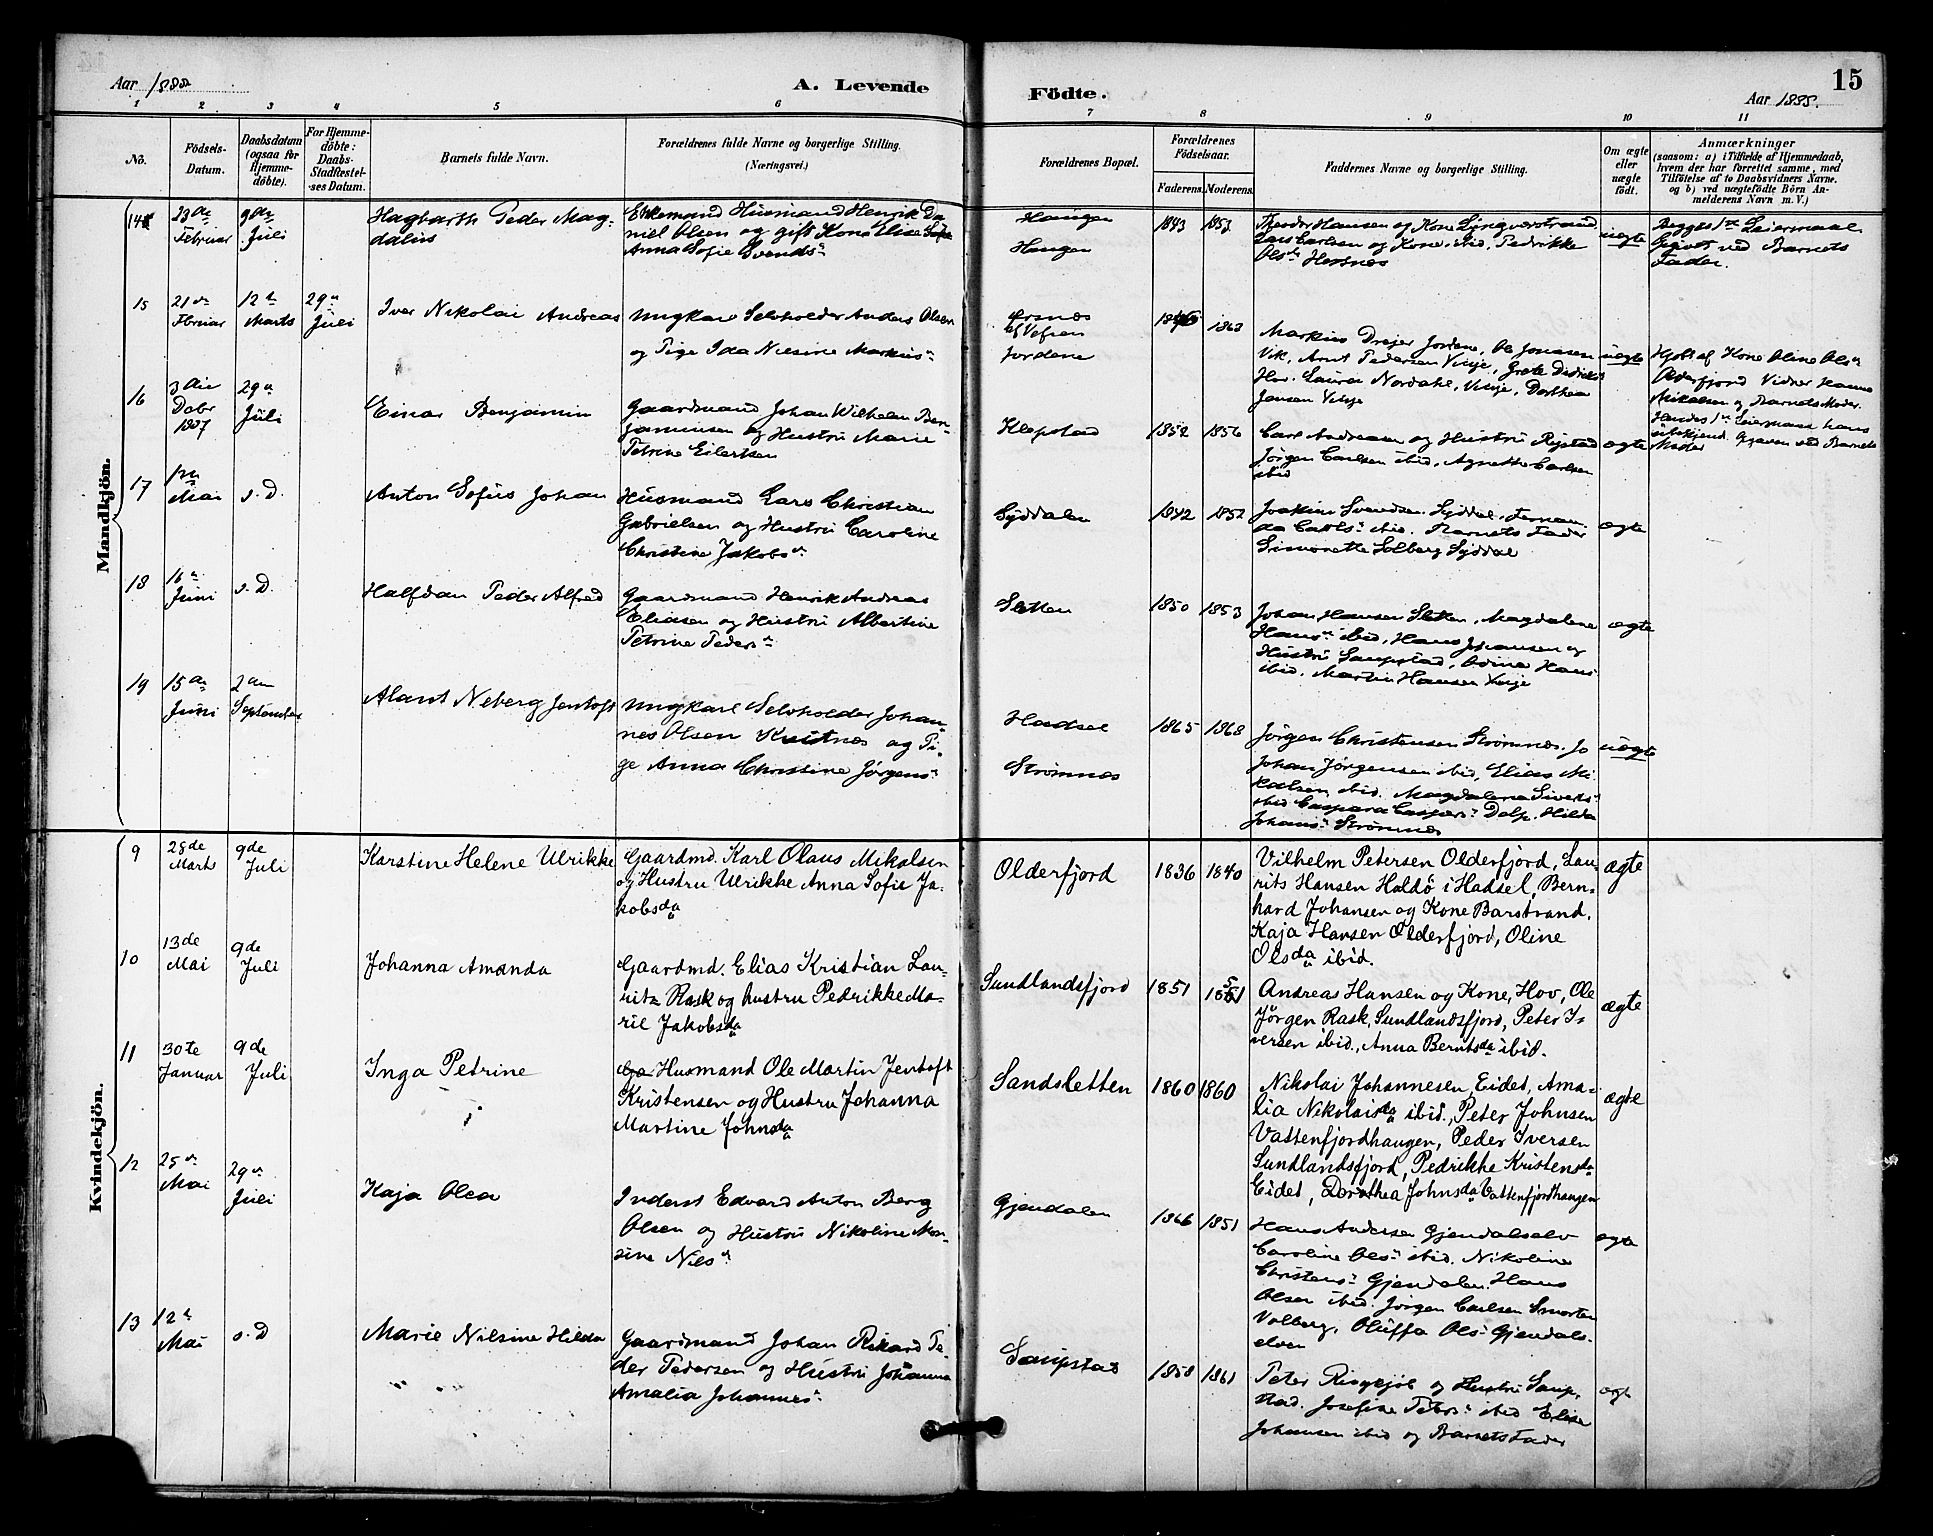 Aar 1888
A. Levende
Födte.
15
Aar 1888.
1 2 3 4 5 6 7 8 9 10 11
No.
Födsels-
Datum.
Daabsdatum
(ogsaa for
Hjemme-
döbte).
For Hjemme-
döbte:
Daabs-
Stadfæstel-
ses Datum.
Barnets fulde Navn.
Forældrenes fulde Navne og borgerlige Stilling.
(Næringsvei.)
Forældrenes Bopæl.
Forældrenes
Födselsaar.
Faderens. Moderens.
Faddernes Navne og borgerlige Stilling.
Om ægte
eller
uægte
födt.
Anmærkninger
(saasom: a) i Tilfælde af Hjemmedaab,
hvem der har forrettet samme, med
Tilföielse af to Daabsvidners Navne.
og b) ved uægtefödte Börn An-
melderens Navn m. V.)
Mandkjön.
14
23de
Februar
9de
Juli
Hagbarth Peder Mag-
dalius
Enkemand Husmand Henrik Da
niel Olsen og gift Kone Elise
Anna Sofie Svends
Haugen
Haugen
1843 1853
Theodor Hansen og Kone Lyngverstrand
Lars Carlsen og Kone ibid, Pedrikke
Ols Hersnes
uægte
Begges 1ste Leiermaal
Opgivet ved Barnets
Fader.
15
21de
Februar
12te
Marts
29de
Juli
Iver Nikolai Andreas
Ungkarl Selvholder Anders Olsen
og Pige Ida Nilsine Markus
af Vefsen
Jordene
1863
Markus Drejer Jordene, Ole Jonassen
Vik, Arnt Pedersen Vinje, Grete Didriks
Hov. Laura Nordahl, Vinje, Dorthea
Jansen Vinje
uægte
Hjdbt af Kone Oline Ols
Olderfjord Vidner Hanna
Mikalsen og Barnets Moder.
Hendes 1ste Leiermaal hans
ubekjend. Opgaven ved Barnets
Moder
16
3die
Decbr
1887
29de
Juli
Einar Benjamin
Gaardmand Johan Wilhelm Ben-
jaminsen og Hustru Marie
Petrine Eilertsen
Klepstad
1852 1856
Carl Andreasen og Hustru Rystad
Jörgen Carlsen ibid, Agnethe Carlsen
ibid
ægte
17
Mai
s. D.
Anton Sofus Johan
Husmand Lars Christian
Gabrielsen og Hustru Caroline
Christine Jakobs
Syddalen
1842 1852
Joakim Svendsen Syddal, Fernan-
da Carls ibid. Barnets Fader
Simonette Solberg Syddal
ægte
18
16de
Juni
s. D.
Halfdan Peder Alfred
Gaardmand Henrik Andreas
Eliasen og Hustru Albertine
Petrine Peders
Sletten
1850 1853
Johan Hansen Sletten, Magdalene
Hans ibid, Hans Johansen og
Hustru Saupstad, Odina Hans
ibid, Martin Hansen Vinje
ægte
19
15de
Juni
2den
September
Alavt Neberg Jentoft
Ungkarl Selvholder Johan
nes Olsen Kvitnes og Pi
ge Anna Christine Jörgens
Hadsel
Strömnes
1865 1868
Jörgen Christensen Strömnes, Jo
Johan Jörgensen ibid, Elias Mi
kalsen ibid. Magdalena Siverts
ibid Caspara Caspers Dalp. Hilda
Johans Strömnes
uægte
Kvindekjön.
9
28de
Marts
9de
Juli
Karstine Helene Ulrikke
Gaardmd. Karl Olaus Mikalsen
og Hustru Ulrikke Anna Sofie Ja-
kobsda
Olderfjord
1836 1840
Vilhelm Petersen Olderfjord, Lau-
rits Hansen Haldö i Hadsel, Bern-
hard Johansen og Kone Barstrand.
Kaja Hansen Olderfjord, Oline
Olsda ibid.
ægte
10
13de
Mai
9de
Juli
Johanna Amanda
Gaardmd. Elias Kristian Lau-
ritz Rask og hustru Pedrikke Ma-
rie Jakobsda
Sundlandsfjord
1851 1851
Andreas Hansen og Kone, Hov, Ole
Jörgen Rask, Sundlandsfjord, Peter I-
versen ibid., Anna Berntsda ibid.
ægte
11
30te
Januar
9de
Juli
Inga Petrine
Husmand Ole Martin Jentoft
Kristensen og Hustru Johanna
Martine Johnsda
Sandsletten
1860 1860
Nikolai Johannesen Eidet, Ama-
lia Nikolaisda ibid., Peter Johnsen
Vattenfjordhaugen, Peder Iversen
Sundlandsfjord, Pedrikke Kristensda
Eidet, Dorothea Johnsda Vattenfjordhaugen
ægte
12
25de
Mai
29de
Juli
Kaja Olea
Inderst Edvard Anton Berg
Olsen og Hustru Nikoline Mon-
sine Nils
Gjendalen
1866 1851
Hans Andersen Gjendalselv
Caroline Ols ibid. Nikoline
Christens Gjendalen. Hans
Olsen ibid. Jörgen Carlsen Smorten
Volberg, Oluffa Ols Gjendals-
elven
ægte
13
12te
Mai
s. D
Marie Nilsine Hilda
Gaardmand Johan Rikard Pe
der Pedersen og Hustru Johanna
Amalia Johannes
Saupstad
1858 1861
Peter Risnykjöl og Hustru Saup-
stad. Josefine Peders ibid Elise
Johansen ibid og Barnets Fader
ægt